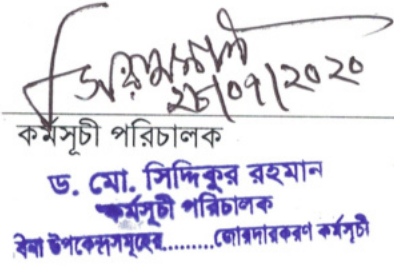 ২৮/০৭/২০২০
কর্মসূচী পরিচালক
ড. মো. সিদ্দিকুর রহমান
কর্মসূচী পরিচালক
বিনা উপকেন্দ্রসমূহের.........জোরদারকরণ কর্মসূচী